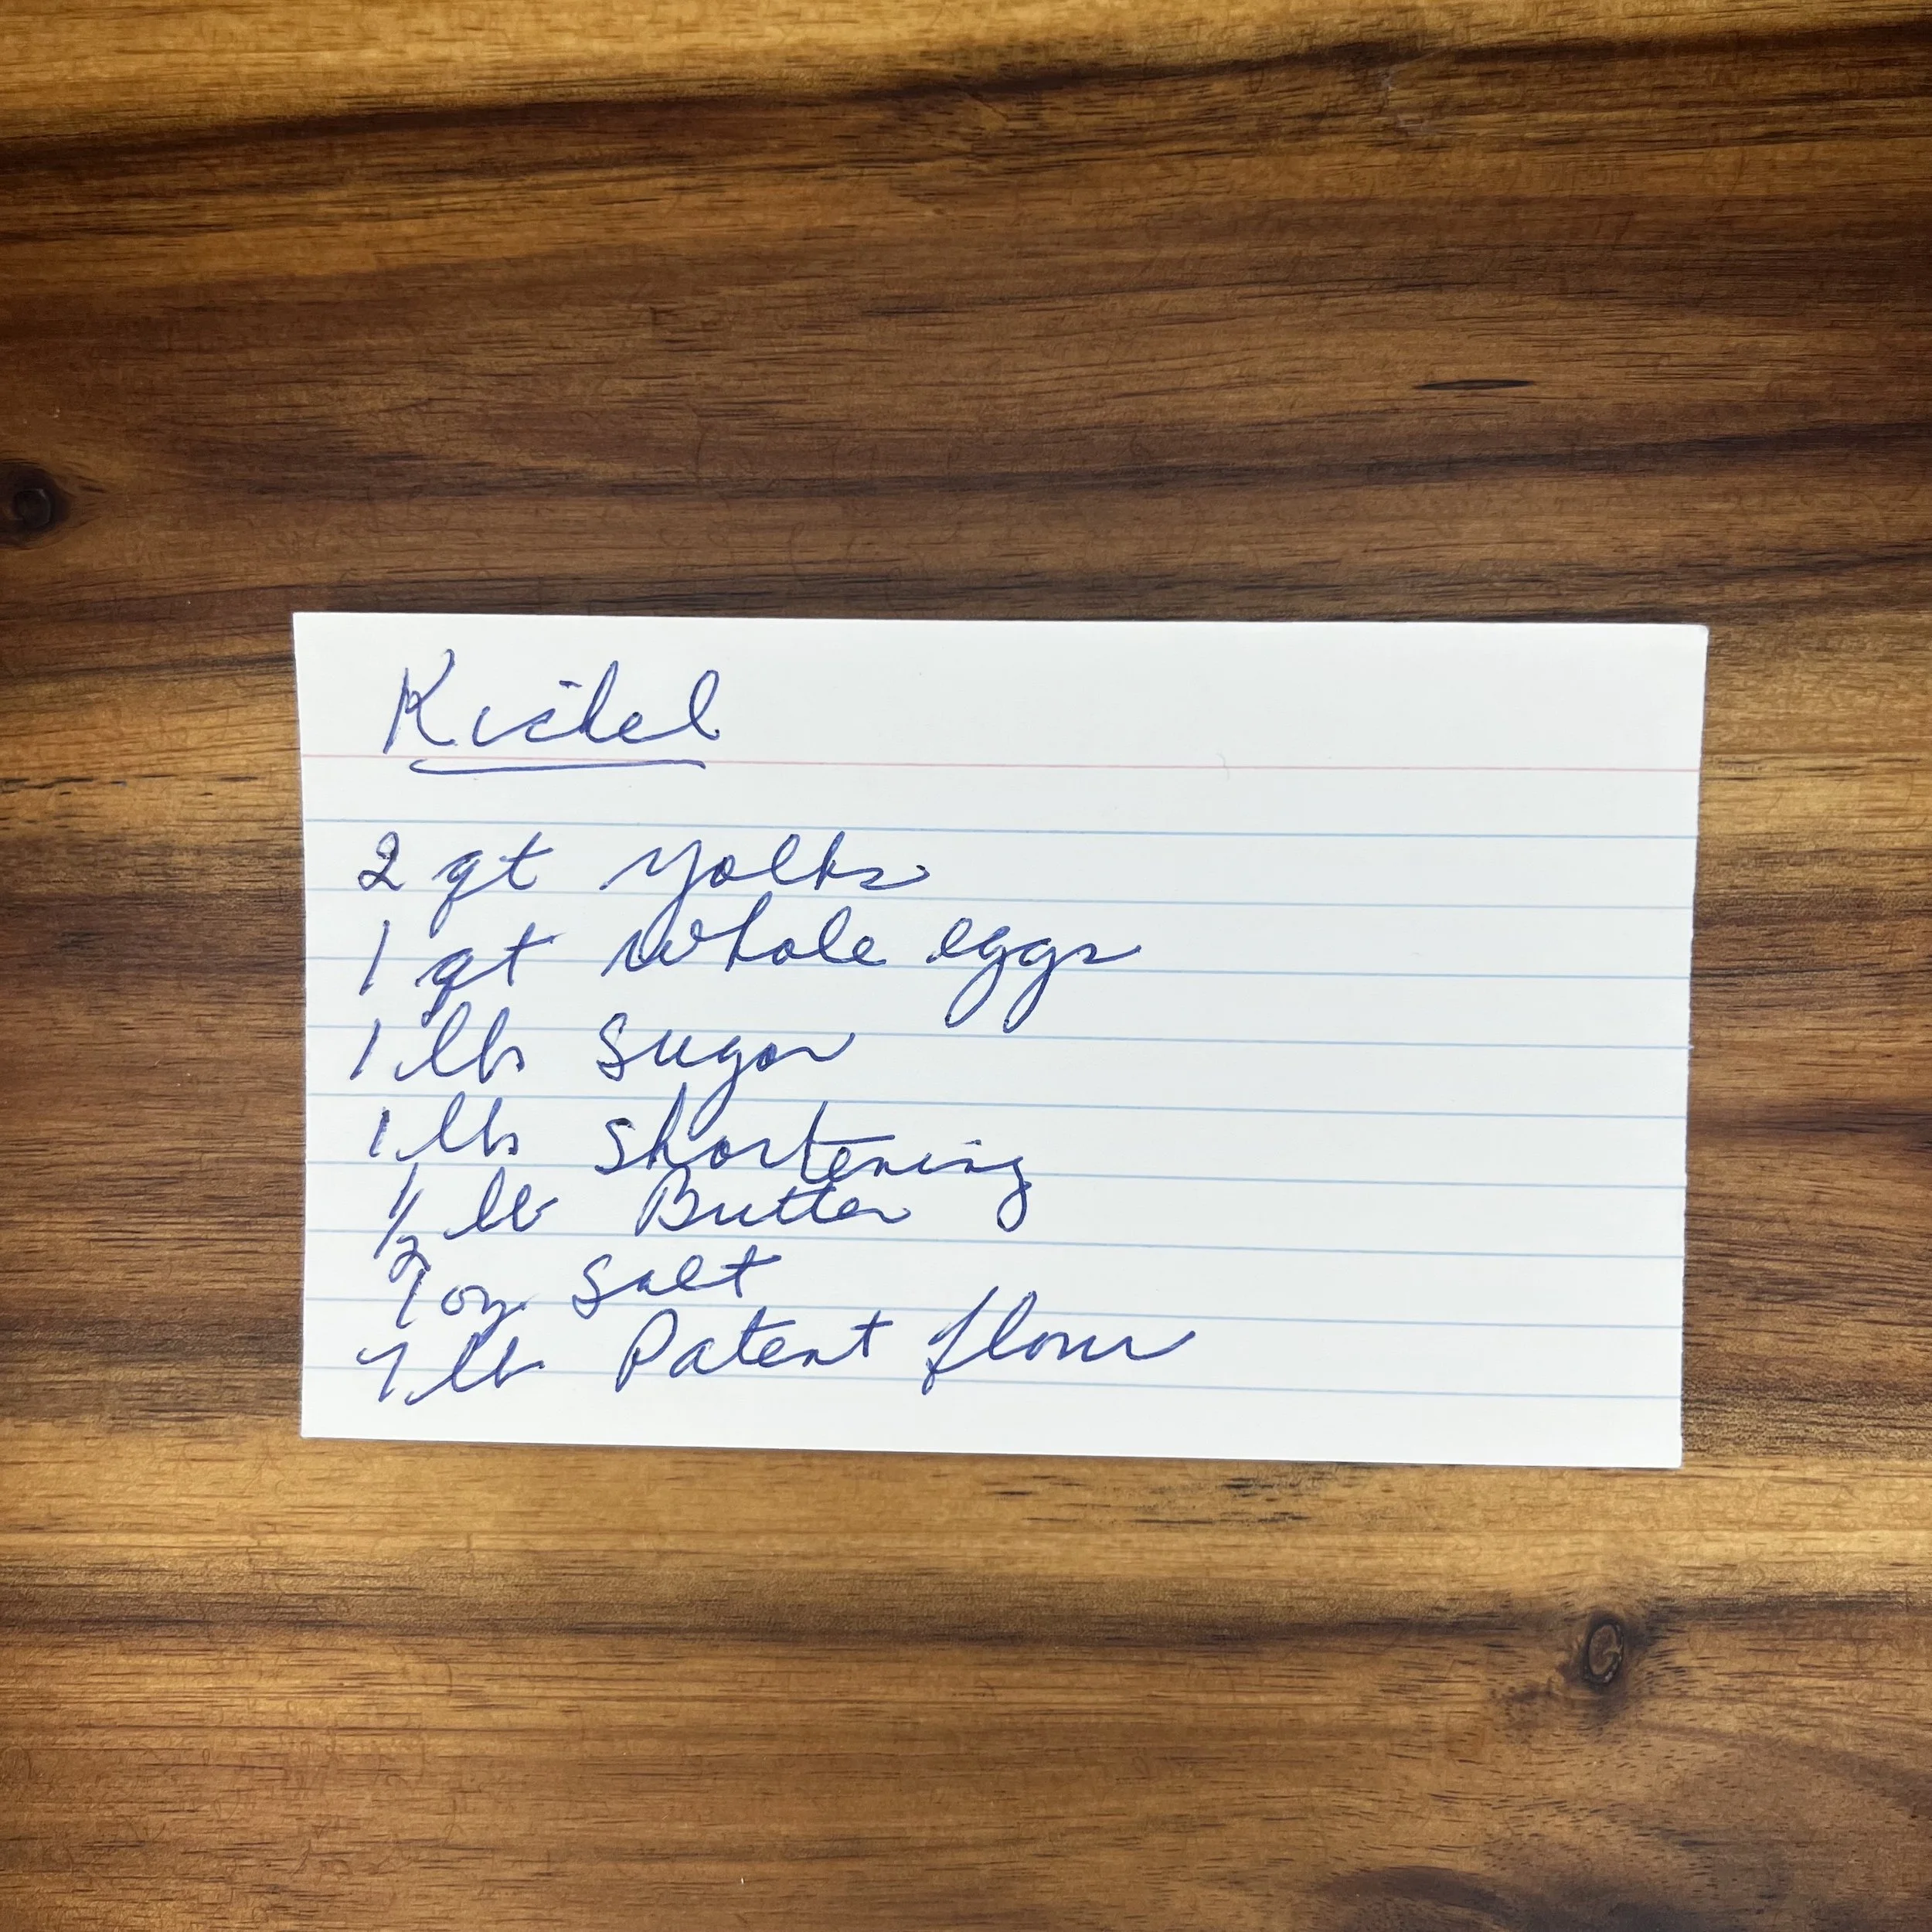 Kichel
2 qt yolks
1 qt whole eggs
1 lbs sugar
1 lbs shortening
1/2 lb Butter
1 oz salt
7 lb Patent flour